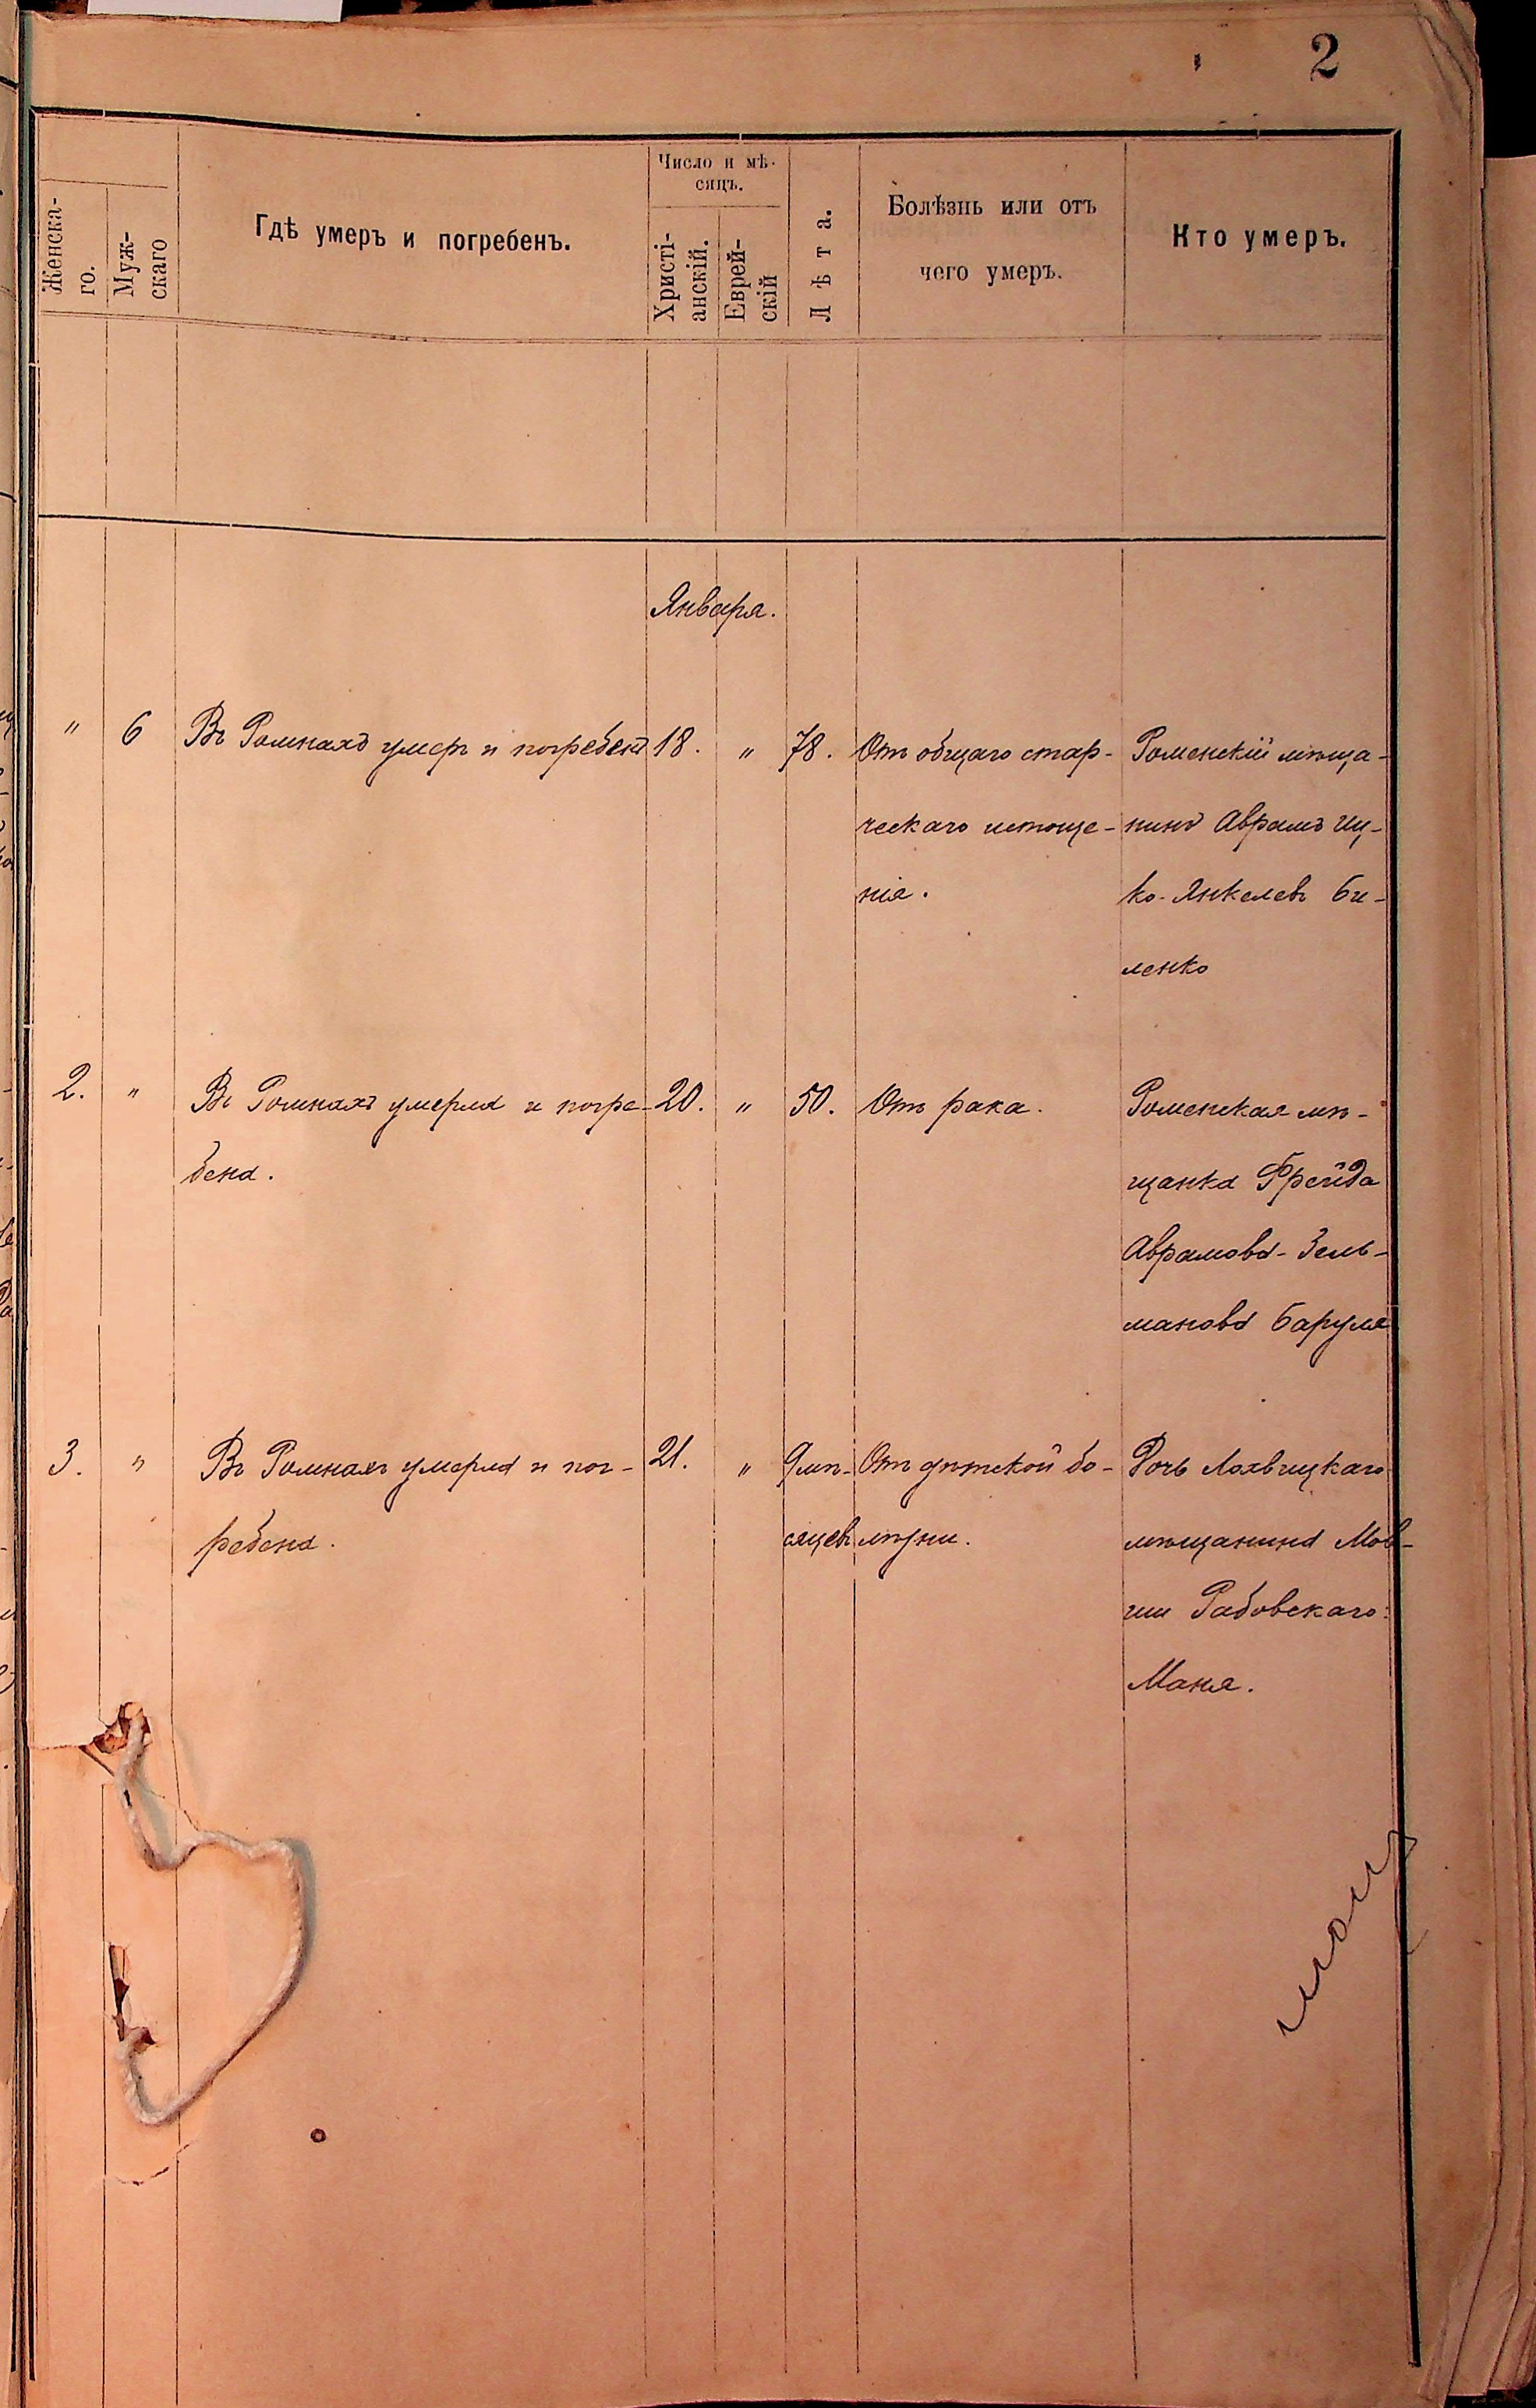 2
Женска-
го.
Муж-
скаго
Гдѣ умеръ и погребенъ.
Число и мѣ-
сяцъ.
Христі-
анскій.
Еврей-
скій
Лѣта.
Болѣзнь или отъ
чего умеръ.
Кто умеръ.
Января.
" 6 Въ Ромнахъ умеръ и погребенъ 18. " 78. Отъ общаго стар- Роменскій мѣща-
ческаго истоще- нинъ Аврамъ Иц-
нія. ко-Янкелевъ Би-
ленко
2. " Въ Ромнахъ умерла и погре- 20. " 50. Отъ рака. Роменская мѣ-
бена. щанка Фрейда
Аврамова-Зель-
манова Баруля
3. " Въ Ромнахъ умерла и пог- 21. " 9 мѣ- Отъ дѣтской бо- Дочь Лохвицкаго
ребена. сяцевъ лѣзни. мѣщанина Мов-
ши Рабовскаго:
Маня.